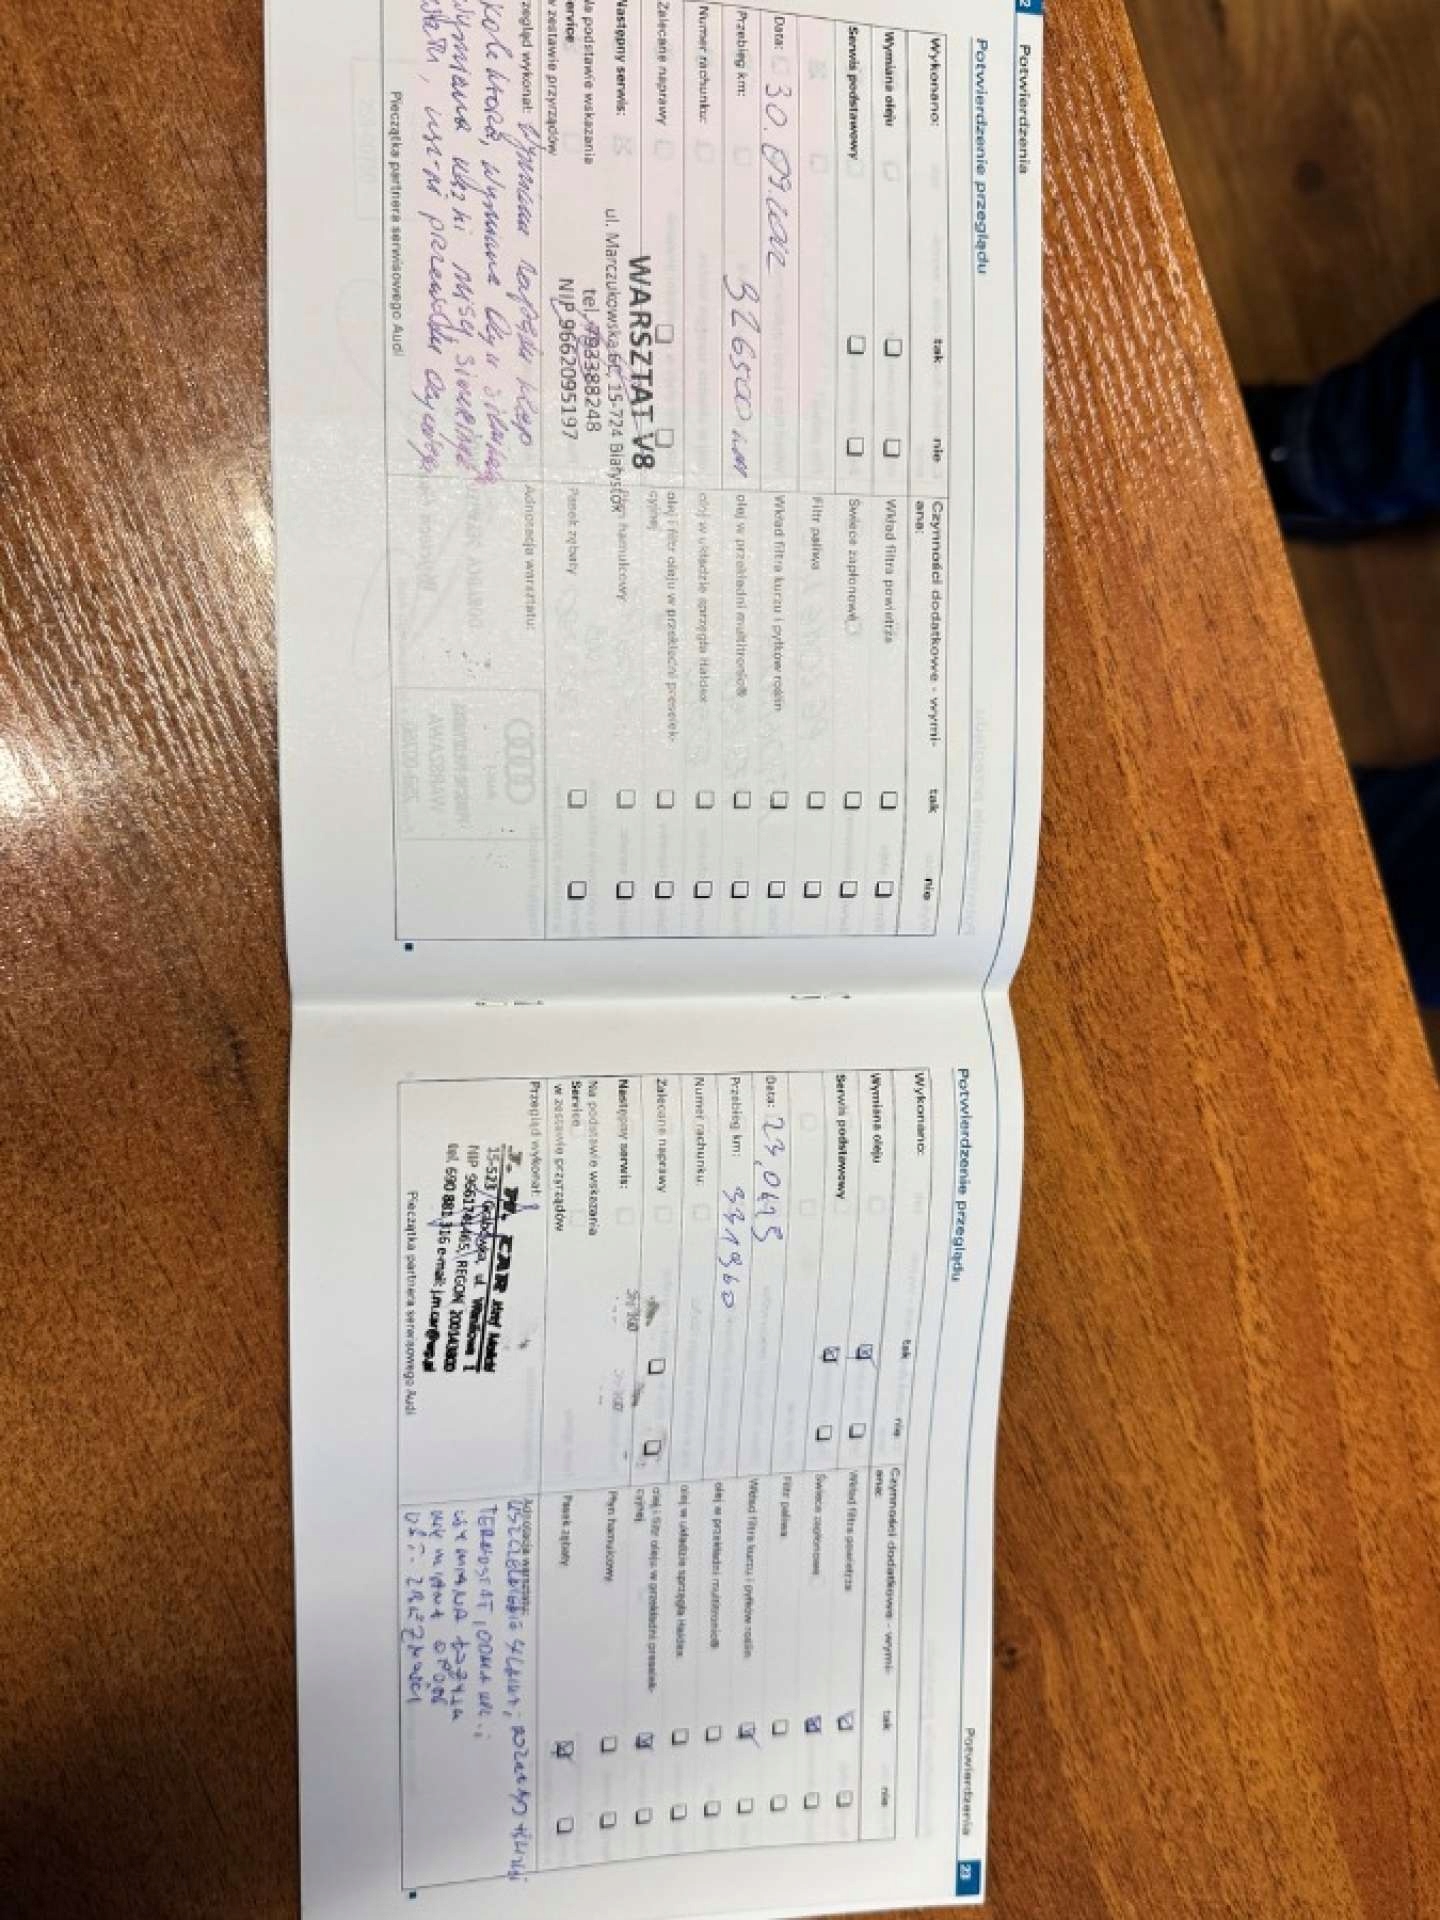 Potwierdzenia
Potwierdzenie przeglądu
Wykonano:
tak
nie
Wymiana oleju
Serwis podstawowy
Data: 30.09.
Przebieg km: 326500 km
Numer rachunku:
Zalecane naprawy
Następny serwis:
Na podstawie wskazania
Service
w zestawie przyrządów
WARSZTAT V8
ul. Marczukowska 6E, 15-724 Białystok
tel. 793388248
NIP 9662095197
Przegląd wykonał: Wymiana napędu klap
kolektora, wymiana oleju silnika,
wymiana
Pieczątka partnera serwisowego Audi
Czynności dodatkowe - wymi-
ana:
tak
nie
Wkład filtra powietrza
Świece zapłonowe
Filtr paliwa
Wkład filtra kurzu i pyłków roślin
olej w przekładni multitronic®
olej w układzie sprzęgła Haldex
olej i filtr oleju w przekładni preselek-
cyjnej
Płyn hamulcowy
Pasek zębaty
Adnotacja warsztatu:
Potwierdzenia
23
Potwierdzenie przeglądu
Wykonano:
tak
nie
Wymiana oleju
Serwis podstawowy
Data: 23,04
Przebieg km: 331960
Numer rachunku:
Zalecane naprawy
Następny serwis:
Na podstawie wskazania
Service
w zestawie przyrządów
Przegląd wykonał:
J. M. CAR
15-523 Grabówka, ul.
NIP 9661741465, REGON 200143800
tel. 690 881 316 e-mail: j.m.car@wp.pl
Pieczątka partnera serwisowego Audi
Czynności dodatkowe - wymi-
ana:
tak
nie
Wkład filtra powietrza
Świece zapłonowe
Filtr paliwa
Wkład filtra kurzu i pyłków roślin
olej w przekładni multitronic®
olej w układzie sprzęgła Haldex
olej i filtr oleju w przekładni preselek-
cyjnej
Płyn hamulcowy
Pasek zębaty
Adnotacja warsztatu:
USZCZELNIENIE SILNIKA, ROZRZĄD
TERMOSTAT,
WYMIANA ŁOŻYSK
WYMIANA OPON